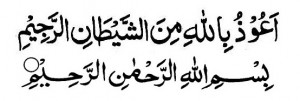 اَعُوْذُ بِاللهِ مِنَ الشَّيْطَانِ الرَّجِيْمِ
بِسْمِ اللهِ الرَّحْمٰنِ الرَّحِيْمِ